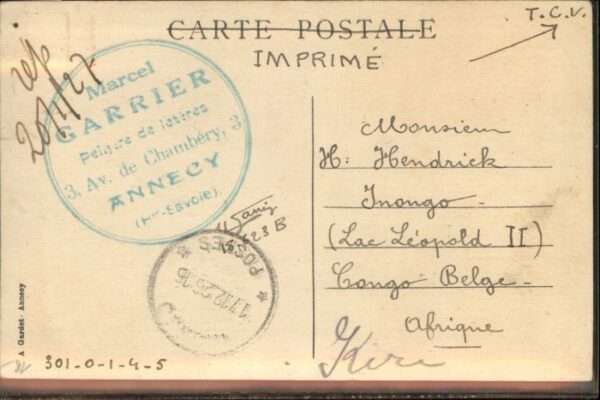 T.C.V.
CARTE POSTALE
IMPRIMÉ
rép
20/1/27
Marcel
GARRIER
Peintre de lettres
3, Av. de Chambéry, 3
ANNECY
(Hte-Savoie)
Monsieur
H. Hendrick
Inongo -
(Lac Léopold II)
Congo Belge -
Afrique
Kiri
423 B
POSÉS
17.12.26-16
A Gardet - Annecy
301-0-1-4-5